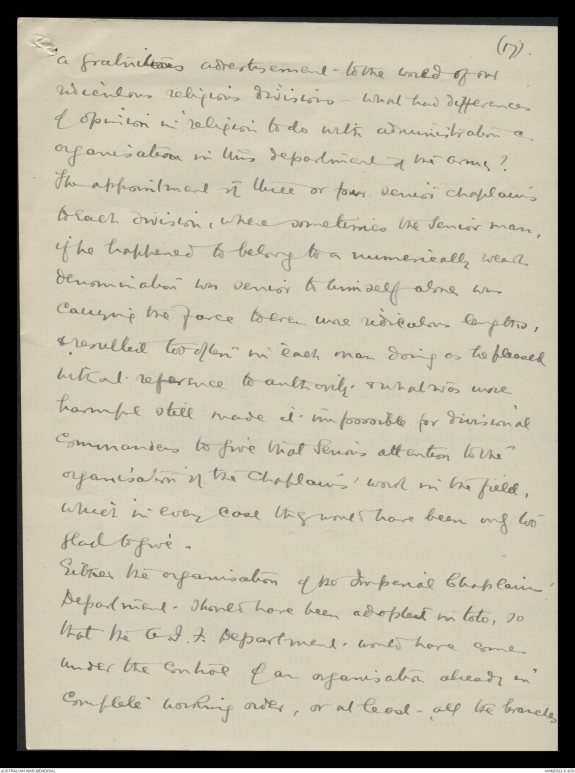 (17).
a gratuitous advertisement to the world of our
ridiculous religious divisions - what had differences
of opinion in religion to do with administration &
organisation in this department of the army?
The appointment of three or four senior chaplains
to each division, where sometimes the senior man,
if he happened to belong to a numerically weak
denomination was senior to himself alone, was
carrying the farce to even more ridiculous lengths,
& resulted too often in each man doing as he pleased
without reference to authority. & what was more
harmful still made it impossible for divisional
Commanders to give that serious attention to the
organisation of the Chaplains' work in the field,
which in every case they would have been only too
glad to give.
Either the organisation of the Imperial Chaplains'
Department should have been adopted in toto, so
that the A.I.F. Department would have come
under the control of an organisation already in
complete working order, or at least all the branches
AUSTRALIAN WAR MEMORIAL